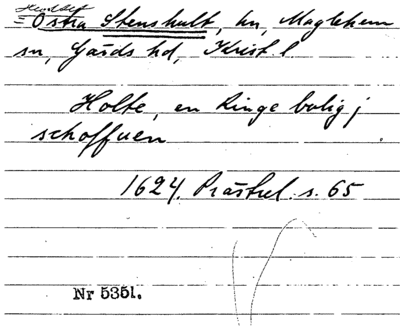 Östra Stenshult, hn, Maglehem
sn, Gärds hd, Krist. l
Holte, en Ringe bolig j
schoffuen
1624. Prästrel. s. 65
Nr 5351.